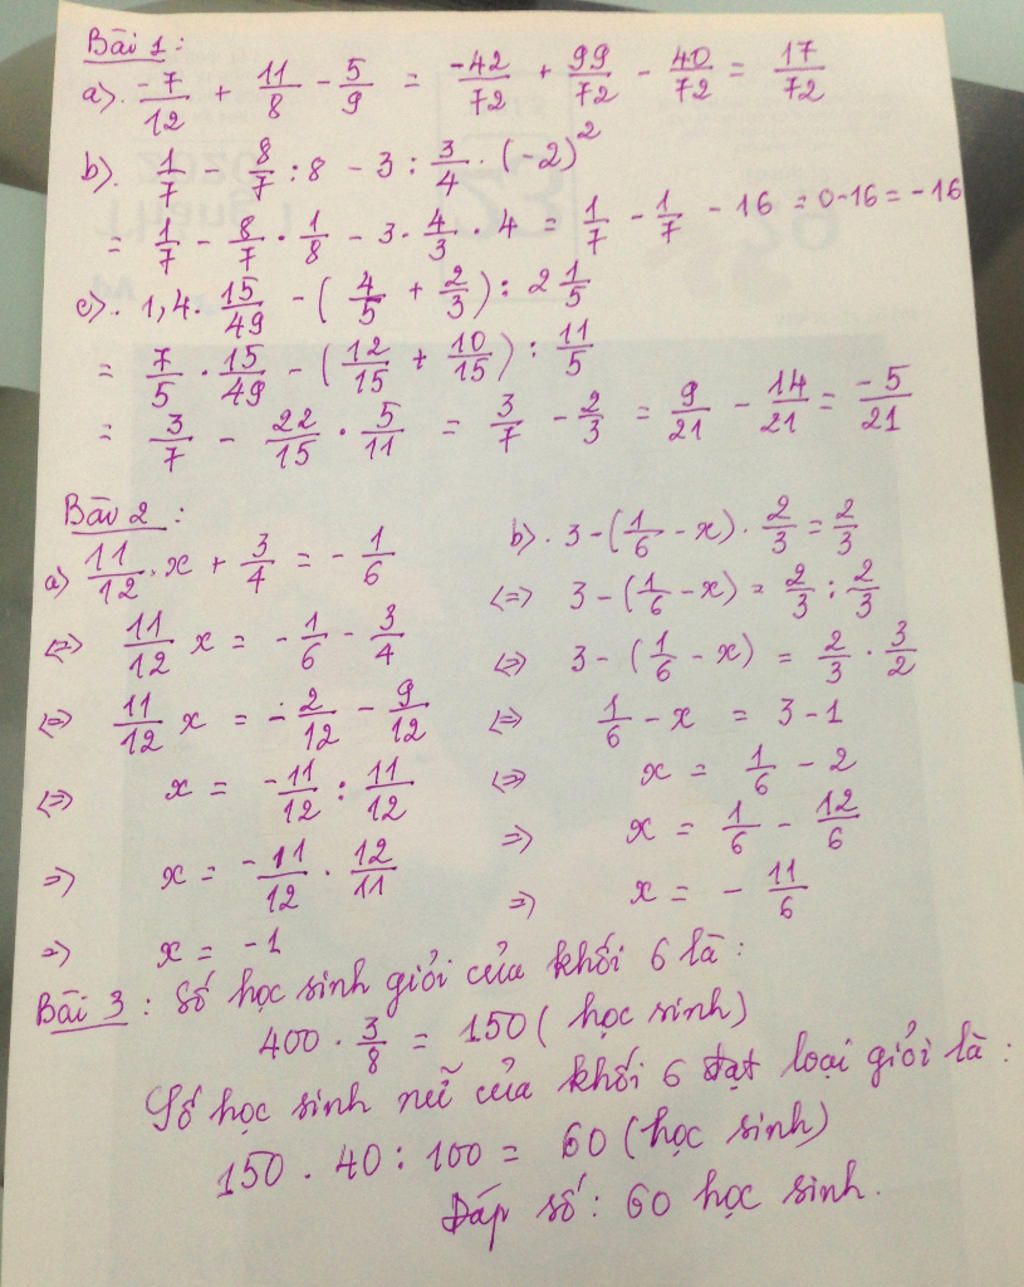 Bài 1:
a). -7/12 + 11/8 - 5/9 = -42/72 + 99/72 - 40/72 = 17/72
b). 1/7 - 8/7 : 8 - 3 : 3/4 . (-2)²
= 1/7 - 8/7 . 1/8 - 3 . 4/3 . 4 = 1/7 - 1/7 - 16 = 0-16 = -16
c). 1,4 . 15/49 - (4/5 + 2/3) : 2 1/5
= 7/5 . 15/49 - (12/15 + 10/15) : 11/5
= 3/7 - 22/15 . 5/11 = 3/7 - 2/3 = 9/21 - 14/21 = -5/21
Bài 2:
a) 11/12 . x + 3/4 = - 1/6
<=> 11/12 x = - 1/6 - 3/4
<=> 11/12 x = - 2/12 - 9/12
<=> x = -11/12 : 11/12
=> x = -11/12 . 12/11
=> x = -1
b). 3 - (1/6 - x) . 2/3 = 2/3
<=> 3 - (1/6 - x) = 2/3 : 2/3
<=> 3 - (1/6 - x) = 2/3 . 3/2
<=> 1/6 - x = 3 - 1
<=> x = 1/6 - 2
=> x = 1/6 - 12/6
=> x = - 11/6
Bài 3: Số học sinh giỏi của khối 6 là:
400 . 3/8 = 150 (học sinh)
Số học sinh nữ của khối 6 đạt loại giỏi là:
150 . 40 : 100 = 60 (học sinh)
Đáp số: 60 học sinh.